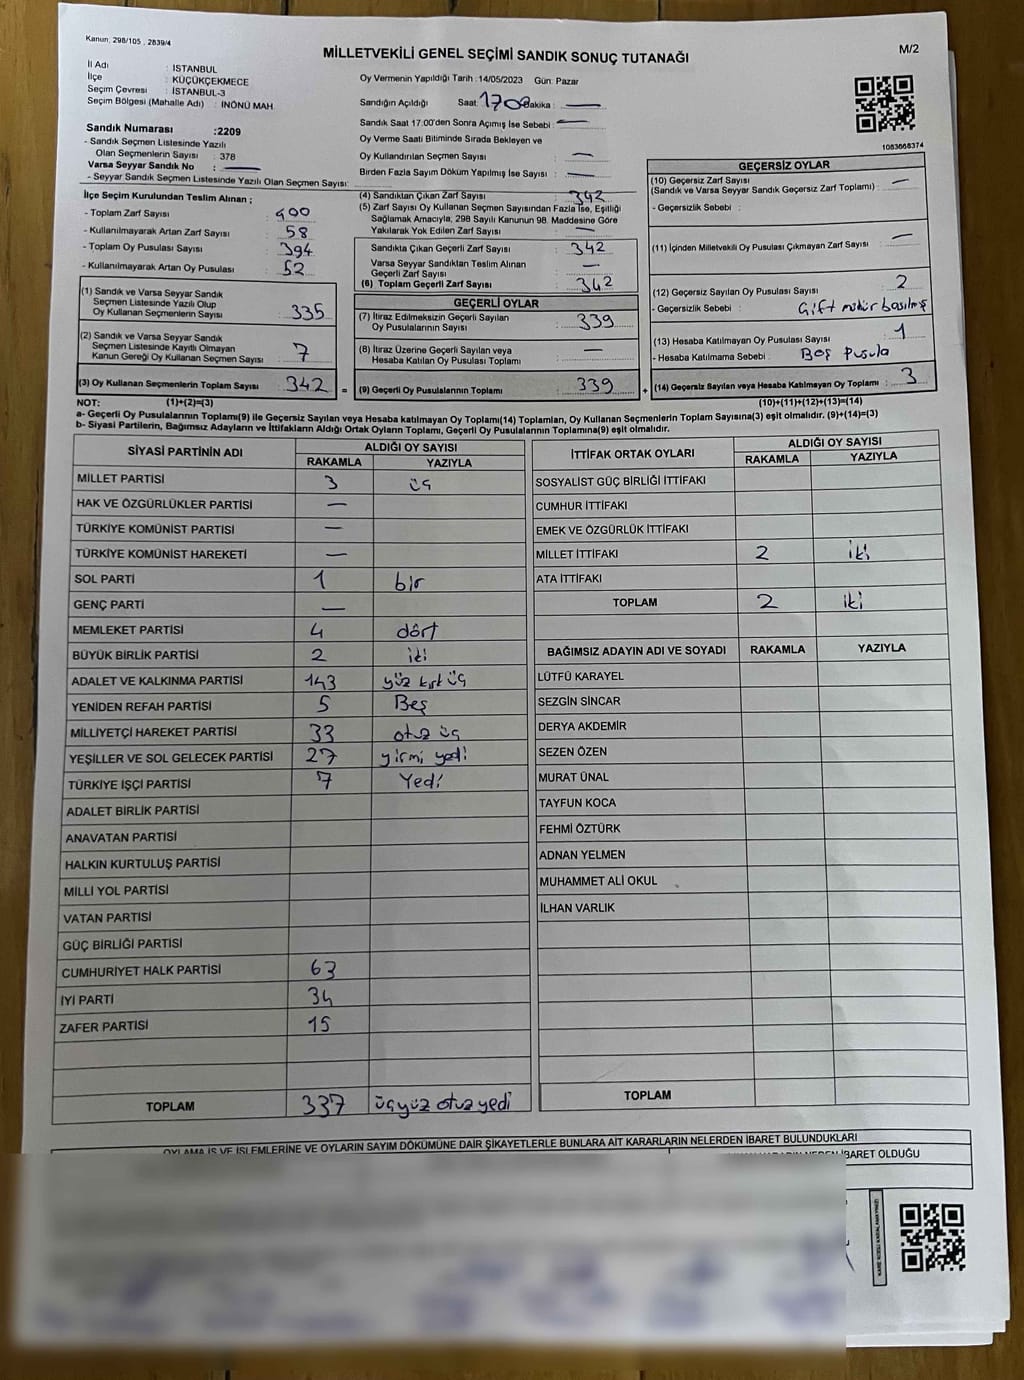 Kanun; 298/105 , 2839/4
MİLLETVEKİLİ GENEL SEÇİMİ SANDIK SONUÇ TUTANAĞI
M/2
İl Adı : İSTANBUL
İlçe : KÜÇÜKÇEKMECE
Seçim Çevresi : İSTANBUL-3
Seçim Bölgesi (Mahalle Adı) : İNÖNÜ MAH.
Oy Vermenin Yapıldığı Tarih : 14/05/2023 Gün: Pazar
Sandığın Açıldığı Saat: 1708 Dakika : —
Sandık Saat 17:00'den Sonra Açılmış İse Sebebi : —
Oy Verme Saati Bitiminde Sırada Bekleyen ve
Oy Kullandırılan Seçmen Sayısı : —
Birden Fazla Sayım Döküm Yapılmış İse Sayısı : —
1083668374
Sandık Numarası :2209
- Sandık Seçmen Listesinde Yazılı
Olan Seçmenlerin Sayısı : 378
Varsa Seyyar Sandık No : —
- Seyyar Sandık Seçmen Listesinde Yazılı Olan Seçmen Sayısı:
İlçe Seçim Kurulundan Teslim Alınan ;
- Toplam Zarf Sayısı : 400
- Kullanılmayarak Artan Zarf Sayısı : 58
- Toplam Oy Pusulası Sayısı : 394
- Kullanılmayarak Artan Oy Pusulası : 52
(1) Sandık ve Varsa Seyyar Sandık
Seçmen Listesinde Yazılı Olup
Oy Kullanan Seçmenlerin Sayısı : 335
(2) Sandık ve Varsa Seyyar Sandık
Seçmen Listesinde Kayıtlı Olmayan
Kanun Gereği Oy Kullanan Seçmen Sayısı : 7
(3) Oy Kullanan Seçmenlerin Toplam Sayısı : 342 =
(4) Sandıktan Çıkan Zarf Sayısı : 342
(5) Zarf Sayısı Oy Kullanan Seçmen Sayısından Fazla İse, Eşitliği
Sağlamak Amacıyla, 298 Sayılı Kanunun 98. Maddesine Göre
Yakılarak Yok Edilen Zarf Sayısı :
Sandıkta Çıkan Geçerli Zarf Sayısı : 342
Varsa Seyyar Sandıktan Teslim Alınan
Geçerli Zarf Sayısı : —
(6) Toplam Geçerli Zarf Sayısı : 342
GEÇERLİ OYLAR
(7) İtiraz Edilmeksizin Geçerli Sayılan
Oy Pusulalarının Sayısı : 339
(8) İtiraz Üzerine Geçerli Sayılan veya
Hesaba Katılan Oy Pusulası Toplamı : —
(9) Geçerli Oy Pusulalarının Toplamı : 339 +
GEÇERSİZ OYLAR
(10) Geçersiz Zarf Sayısı
(Sandık ve Varsa Seyyar Sandık Geçersiz Zarf Toplamı) : —
- Geçersizlik Sebebi :
(11) İçinden Milletvekili Oy Pusulası Çıkmayan Zarf Sayısı : —
(12) Geçersiz Sayılan Oy Pusulası Sayısı : 2
- Geçersizlik Sebebi : Çift mühür basılmış
(13) Hesaba Katılmayan Oy Pusulası Sayısı : 1
- Hesaba Katılmama Sebebi : Boş Pusula
(14) Geçersiz Sayılan veya Hesaba Katılmayan Oy Toplamı : 3
NOT: (1)+(2)=(3)
(10)+(11)+(12)+(13)=(14)
a- Geçerli Oy Pusulalarının Toplamı(9) ile Geçersiz Sayılan veya Hesaba katılmayan Oy Toplamı(14) Toplamları, Oy Kullanan Seçmenlerin Toplam Sayısına(3) eşit olmalıdır. (9)+(14)=(3)
b- Siyasi Partilerin, Bağımsız Adayların ve İttifakların Aldığı Ortak Oyların Toplamı, Geçerli Oy Pusulalarının Toplamına(9) eşit olmalıdır.
SİYASİ PARTİNİN ADI
ALDIĞI OY SAYISI
RAKAMLA YAZIYLA
MİLLET PARTİSİ 3 üç
HAK VE ÖZGÜRLÜKLER PARTİSİ —
TÜRKİYE KOMÜNİST PARTİSİ —
TÜRKİYE KOMÜNİST HAREKETİ —
SOL PARTİ 1 bir
GENÇ PARTİ —
MEMLEKET PARTİSİ 4 dört
BÜYÜK BİRLİK PARTİSİ 2 iki
ADALET VE KALKINMA PARTİSİ 143 yüz kırk üç
YENİDEN REFAH PARTİSİ 5 Beş
MİLLİYETÇİ HAREKET PARTİSİ 33 otuz üç
YEŞİLLER VE SOL GELECEK PARTİSİ 27 yirmi yedi
TÜRKİYE İŞÇİ PARTİSİ 7 Yedi
ADALET BİRLİK PARTİSİ
ANAVATAN PARTİSİ
HALKIN KURTULUŞ PARTİSİ
MİLLİ YOL PARTİSİ
VATAN PARTİSİ
GÜÇ BİRLİĞİ PARTİSİ
CUMHURİYET HALK PARTİSİ 63
İYİ PARTİ 34
ZAFER PARTİSİ 15
TOPLAM 337 üçyüz otuz yedi
İTTİFAK ORTAK OYLARI
ALDIĞI OY SAYISI
RAKAMLA YAZIYLA
SOSYALİST GÜÇ BİRLİĞİ İTTİFAKI
CUMHUR İTTİFAKI
EMEK VE ÖZGÜRLÜK İTTİFAKI
MİLLET İTTİFAKI 2 iki
ATA İTTİFAKI
TOPLAM 2 iki
BAĞIMSIZ ADAYIN ADI VE SOYADI RAKAMLA YAZIYLA
LÜTFÜ KARAYEL
SEZGİN SİNCAR
DERYA AKDEMİR
SEZEN ÖZEN
MURAT ÜNAL
TAYFUN KOCA
FEHMİ ÖZTÜRK
ADNAN YELMEN
MUHAMMET ALİ OKUL
İLHAN VARLIK
TOPLAM
OYLAMA İŞ VE İŞLEMLERİNE VE OYLARIN SAYIM DÖKÜMÜNE DAİR ŞİKAYETLERLE BUNLARA AİT KARARLARIN NELERDEN İBARET BULUNDUKLARI
NEDEN İBARET OLDUĞU